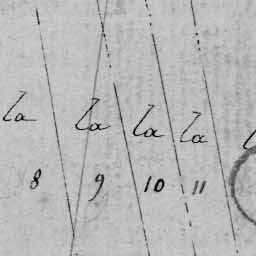 la la la la
8 9 10 11